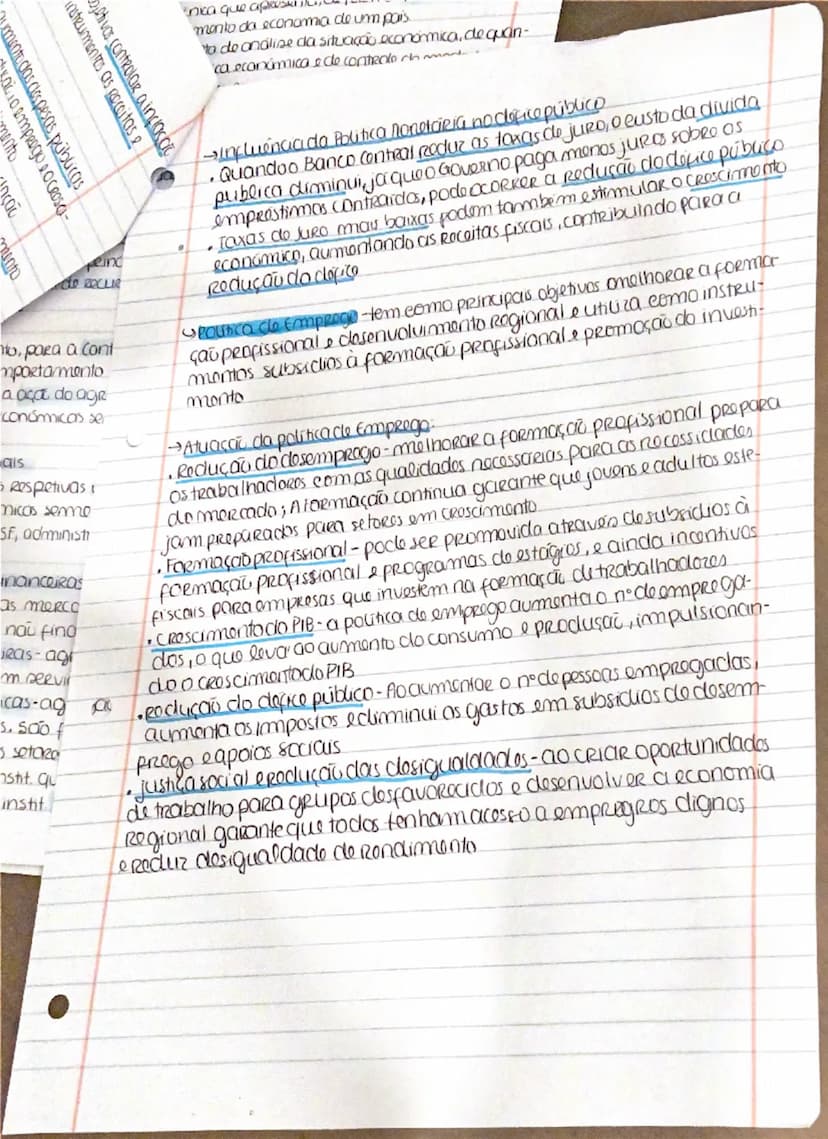 nica que
mento da economia de um país
to de análise da situação económica, de quan-
ca económica e de controle
controlar a inflação
instrumentos as receitas e
das despesas públicas
→ Influência da Política Monetária no défice público
. Quando o Banco Central reduz as taxas de juro, o custo da dívida
pública diminui, já que o Governo paga menos juros sobre os
empréstimos contraídos, pode ocorrer a redução do défice público
. Taxas de juro mais baixas podem também estimular o crescimento
económico, aumentando as receitas fiscais, contribuindo para a
redução do défice
↳ Política de Emprego - tem como principais objetivos melhorar a forma-
ção profissional e desenvolvimento regional e utiliza como instru-
mentos subsídios à formação profissional e promoção do investi-
mento
→ Atuação da política de Emprego:
. Redução do desemprego - melhorar a formação profissional prepara
os trabalhadores com as qualidades necessárias para as necessidades
do mercado; A formação contínua garante que jovens e adultos este-
jam preparados para setores em crescimento
. Formação profissional - pode ser promovida através de subsídios à
formação profissional e programas de estágios, e ainda incentivos
fiscais para empresas que investem na formação de trabalhadores
. Crescimento do PIB - a política de emprego aumenta o nº de emprega-
dos, o que leva ao aumento do consumo e produção, impulsionan-
do o crescimento do PIB
. Redução do défice público - Ao aumentar o nº de pessoas empregadas,
aumenta os impostos e diminui os gastos em subsídios de desem-
prego e apoios sociais
. Justiça social e redução das desigualdades - ao criar oportunidades
de trabalho para grupos desfavorecidos e desenvolver a economia
regional garante que todos tenham acesso a empregros dignos
e reduz desigualdade de rendimento
to, para a cont
mportamento
a ação do agr
conómicos se
ais
respetivas
nicas semo
SF, administ
inanceiras
as merca
não fina
ieas - ag
m servi
icas - ag
s. são f
setora
nstit. qu
instit.